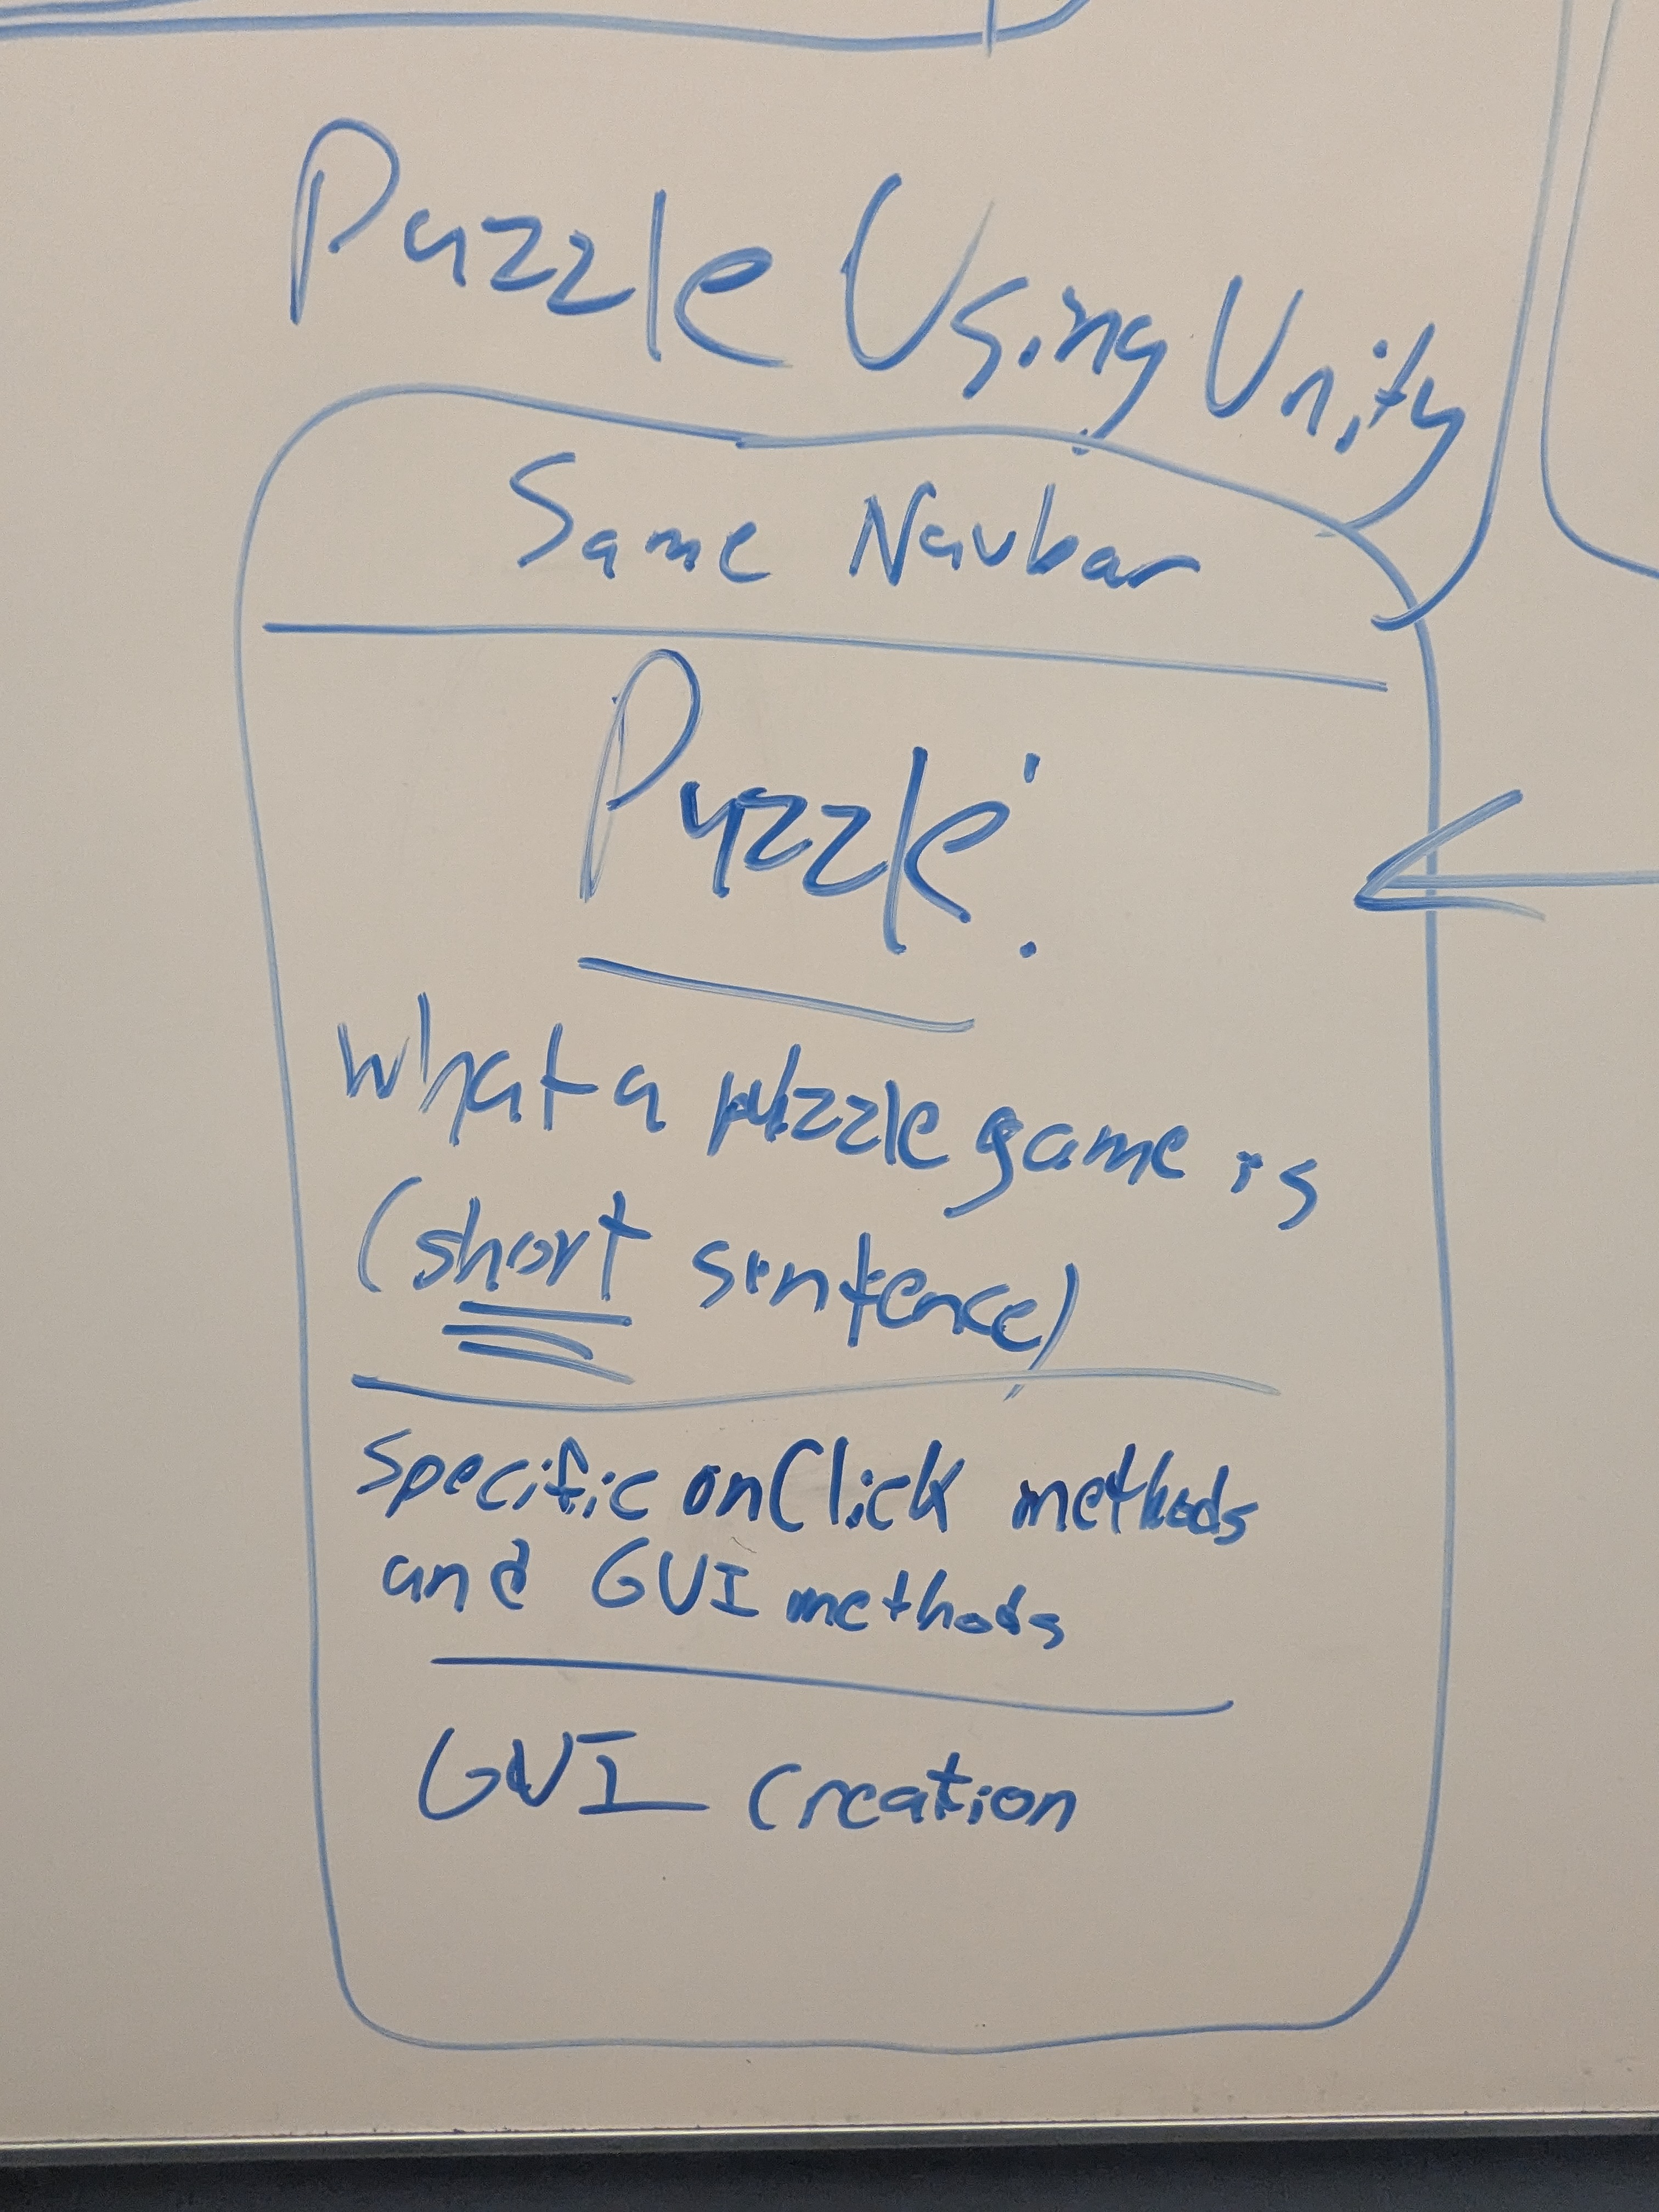 Puzzle Using Unity
Same Navbar
Puzzle:
What a puzzle game is
(short sentence)
specific onClick methods
and GUI methods
GUI creation